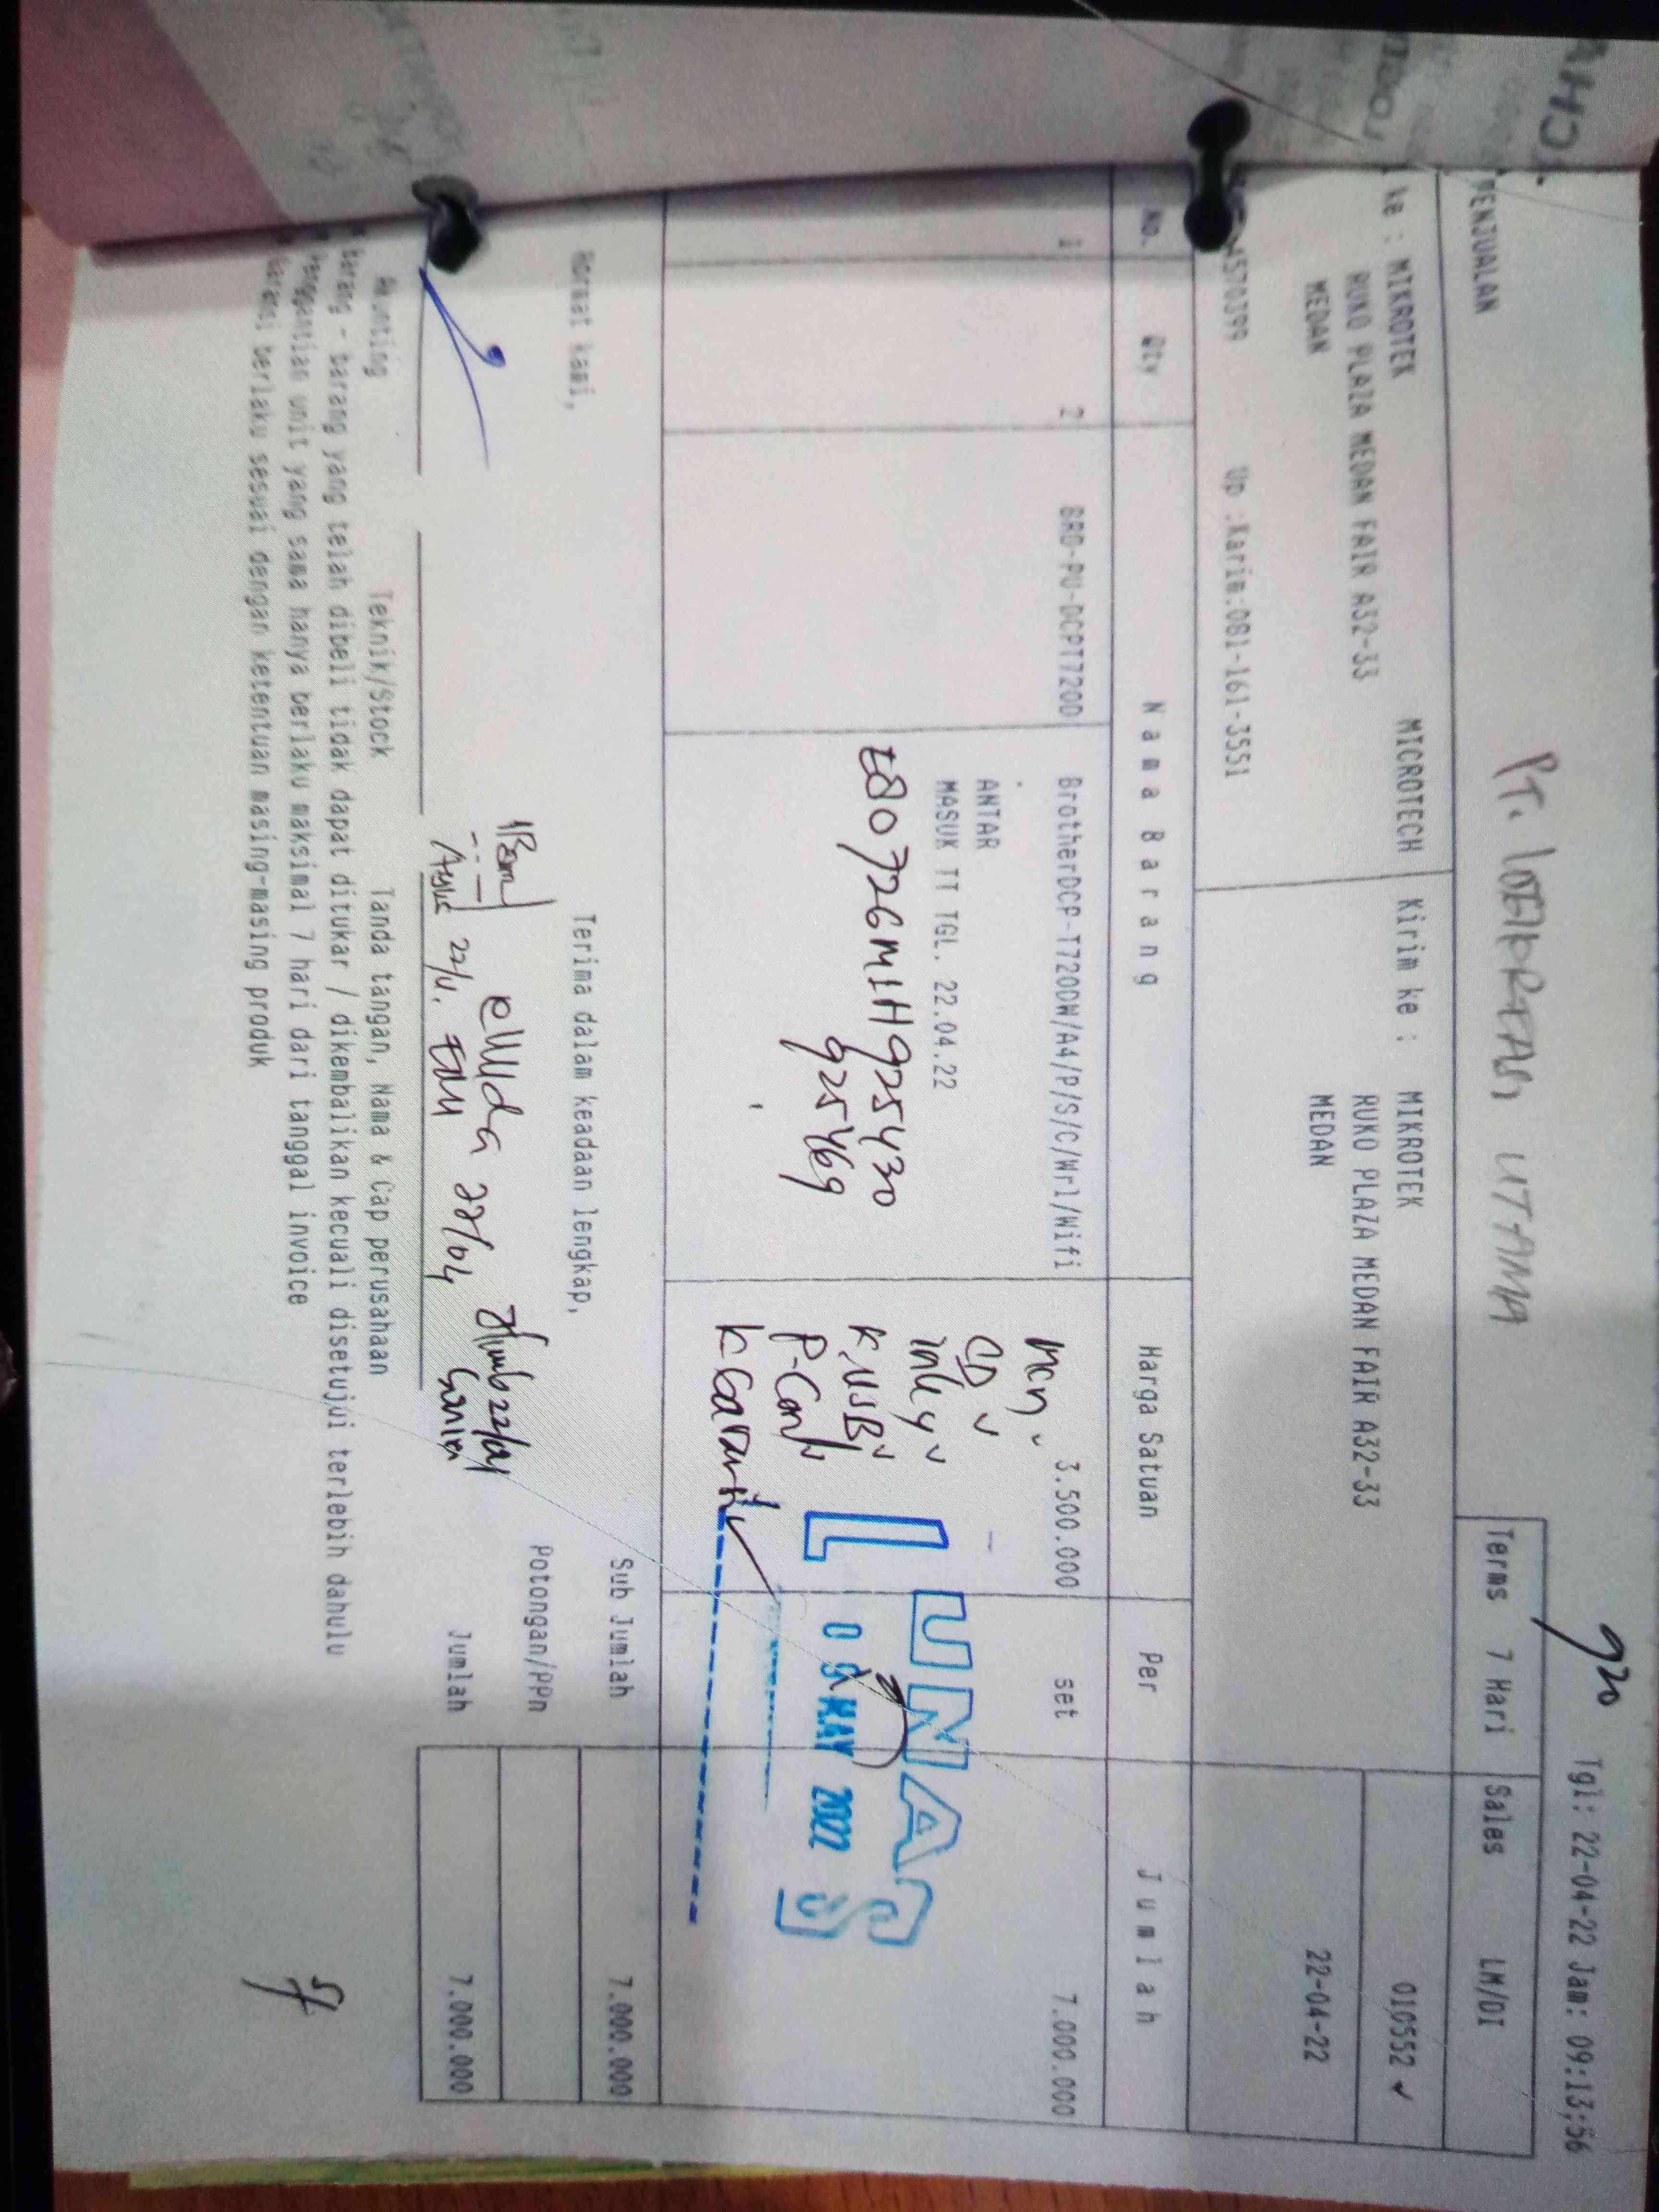 920 Tgl: 22-04-22 Jam: 09:13;56
PENJUALAN PT. UTAMA Terms 7 Hari Sales LM/DI
ke : MIKROTEK MICROTECH Kirim ke : MIKROTEK 010552 ✓
RUKO PLAZA MEDAN FAIR A32-33 RUKO PLAZA MEDAN FAIR A32-33
MEDAN MEDAN 22-04-22
4570399 Up :Karim:081-161-3551
No. Qty Nama Barang Harga Satuan Per Jumlah
1 2 BRD-PU-DCPT720D BrotherDCP-T720DW/A4/P/S/C/Wrl/Wifi 3.500.000 set 7.000.000
mcn
ANTAR
CD
MASUK TT TGL. 22.04.22
ink 4
E80726M1H925430
K.USB
925469
P-Cord
K Garansi
LUNAS
09 MAY 2022
Sub Jumlah 7.000.000
Hormat kami, Terima dalam keadaan lengkap,
Potongan/PPn
ellyda 22/04
22/4
Jumlah 7.000.000
Akunting Teknik/Stock Tanda tangan, Nama & Cap perusahaan
* Barang - barang yang telah dibeli tidak dapat ditukar / dikembalikan kecuali disetujui terlebih dahulu
* Penggantian unit yang sama hanya berlaku maksimal 7 hari dari tanggal invoice
* Garansi berlaku sesuai dengan ketentuan masing-masing produk